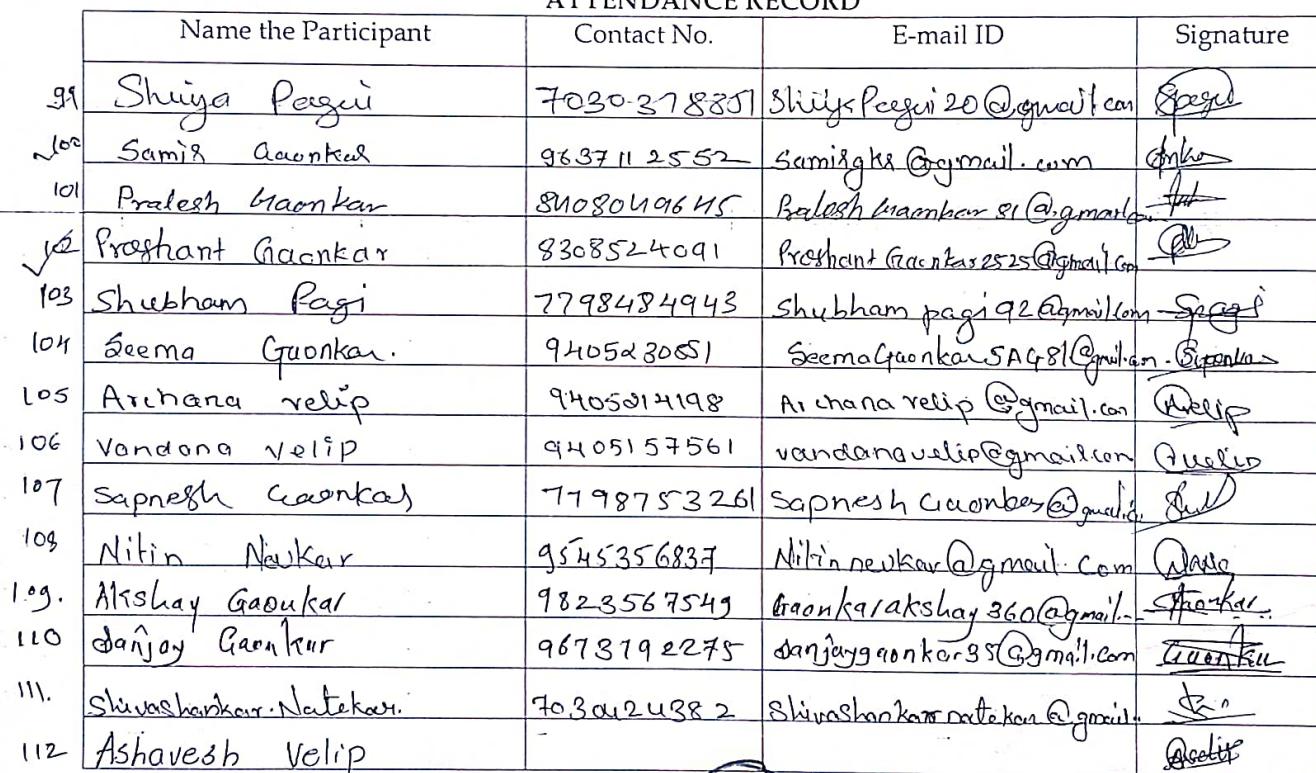 ATTENDANCE RECORD
Name the Participant Contact No. E-mail ID Signature
99 Shriya Pagui 7030378851 Shriya Pagui20@gmail.com Spagui
100 Samir Gaonkar 9637112552 Samirgkr@gmail.com
101 Pralesh Gaonkar 8408049645 Pralesh Gaonkar 81@gmail.co
102 Prashant Gaonkar 8308524091 Prashant Gaonkar2525@gmail.com
103 Shubham Pagi 7798484943 Shubham pagi92@gmail.com Spagi
104 Seema Gaonkar. 9405230651 SeemaGaonkarSAG81@gmail.com
105 Archana velip 9405814198 Archana velip@gmail.com Avelip
106 Vandana Velip 9405157561 vandanavelip@gmail.com Vvelip
107 Sapnesh Gaonkar 7798753261 Sapnesh Gaonkar@gmail.c
108 Nitin Nevkar 9545356837 Nitin nevkar@gmail.com
109. Akshay Gaonkar 9823567549 Gaonkarakshay360@gmail.-
110 Sanjay Gaonkar 9673792275 Sanjaygaonkar35@gmail.com Gaonkar
111. Shivashankar.Natekar. 7030424382 Shivashankar natekar@gmail.
112 Ashavesh Velip Avelip